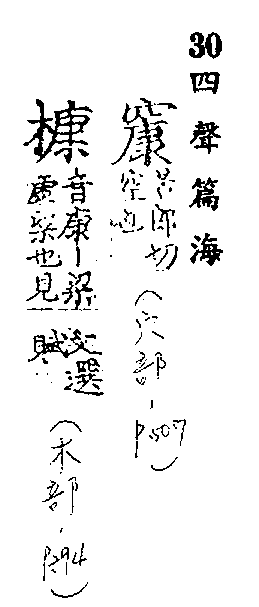 30四聲篇海
㝩苦郎切空也(穴部,P507)
槺音康—梁虛梁也見文選賦(木部,P294)